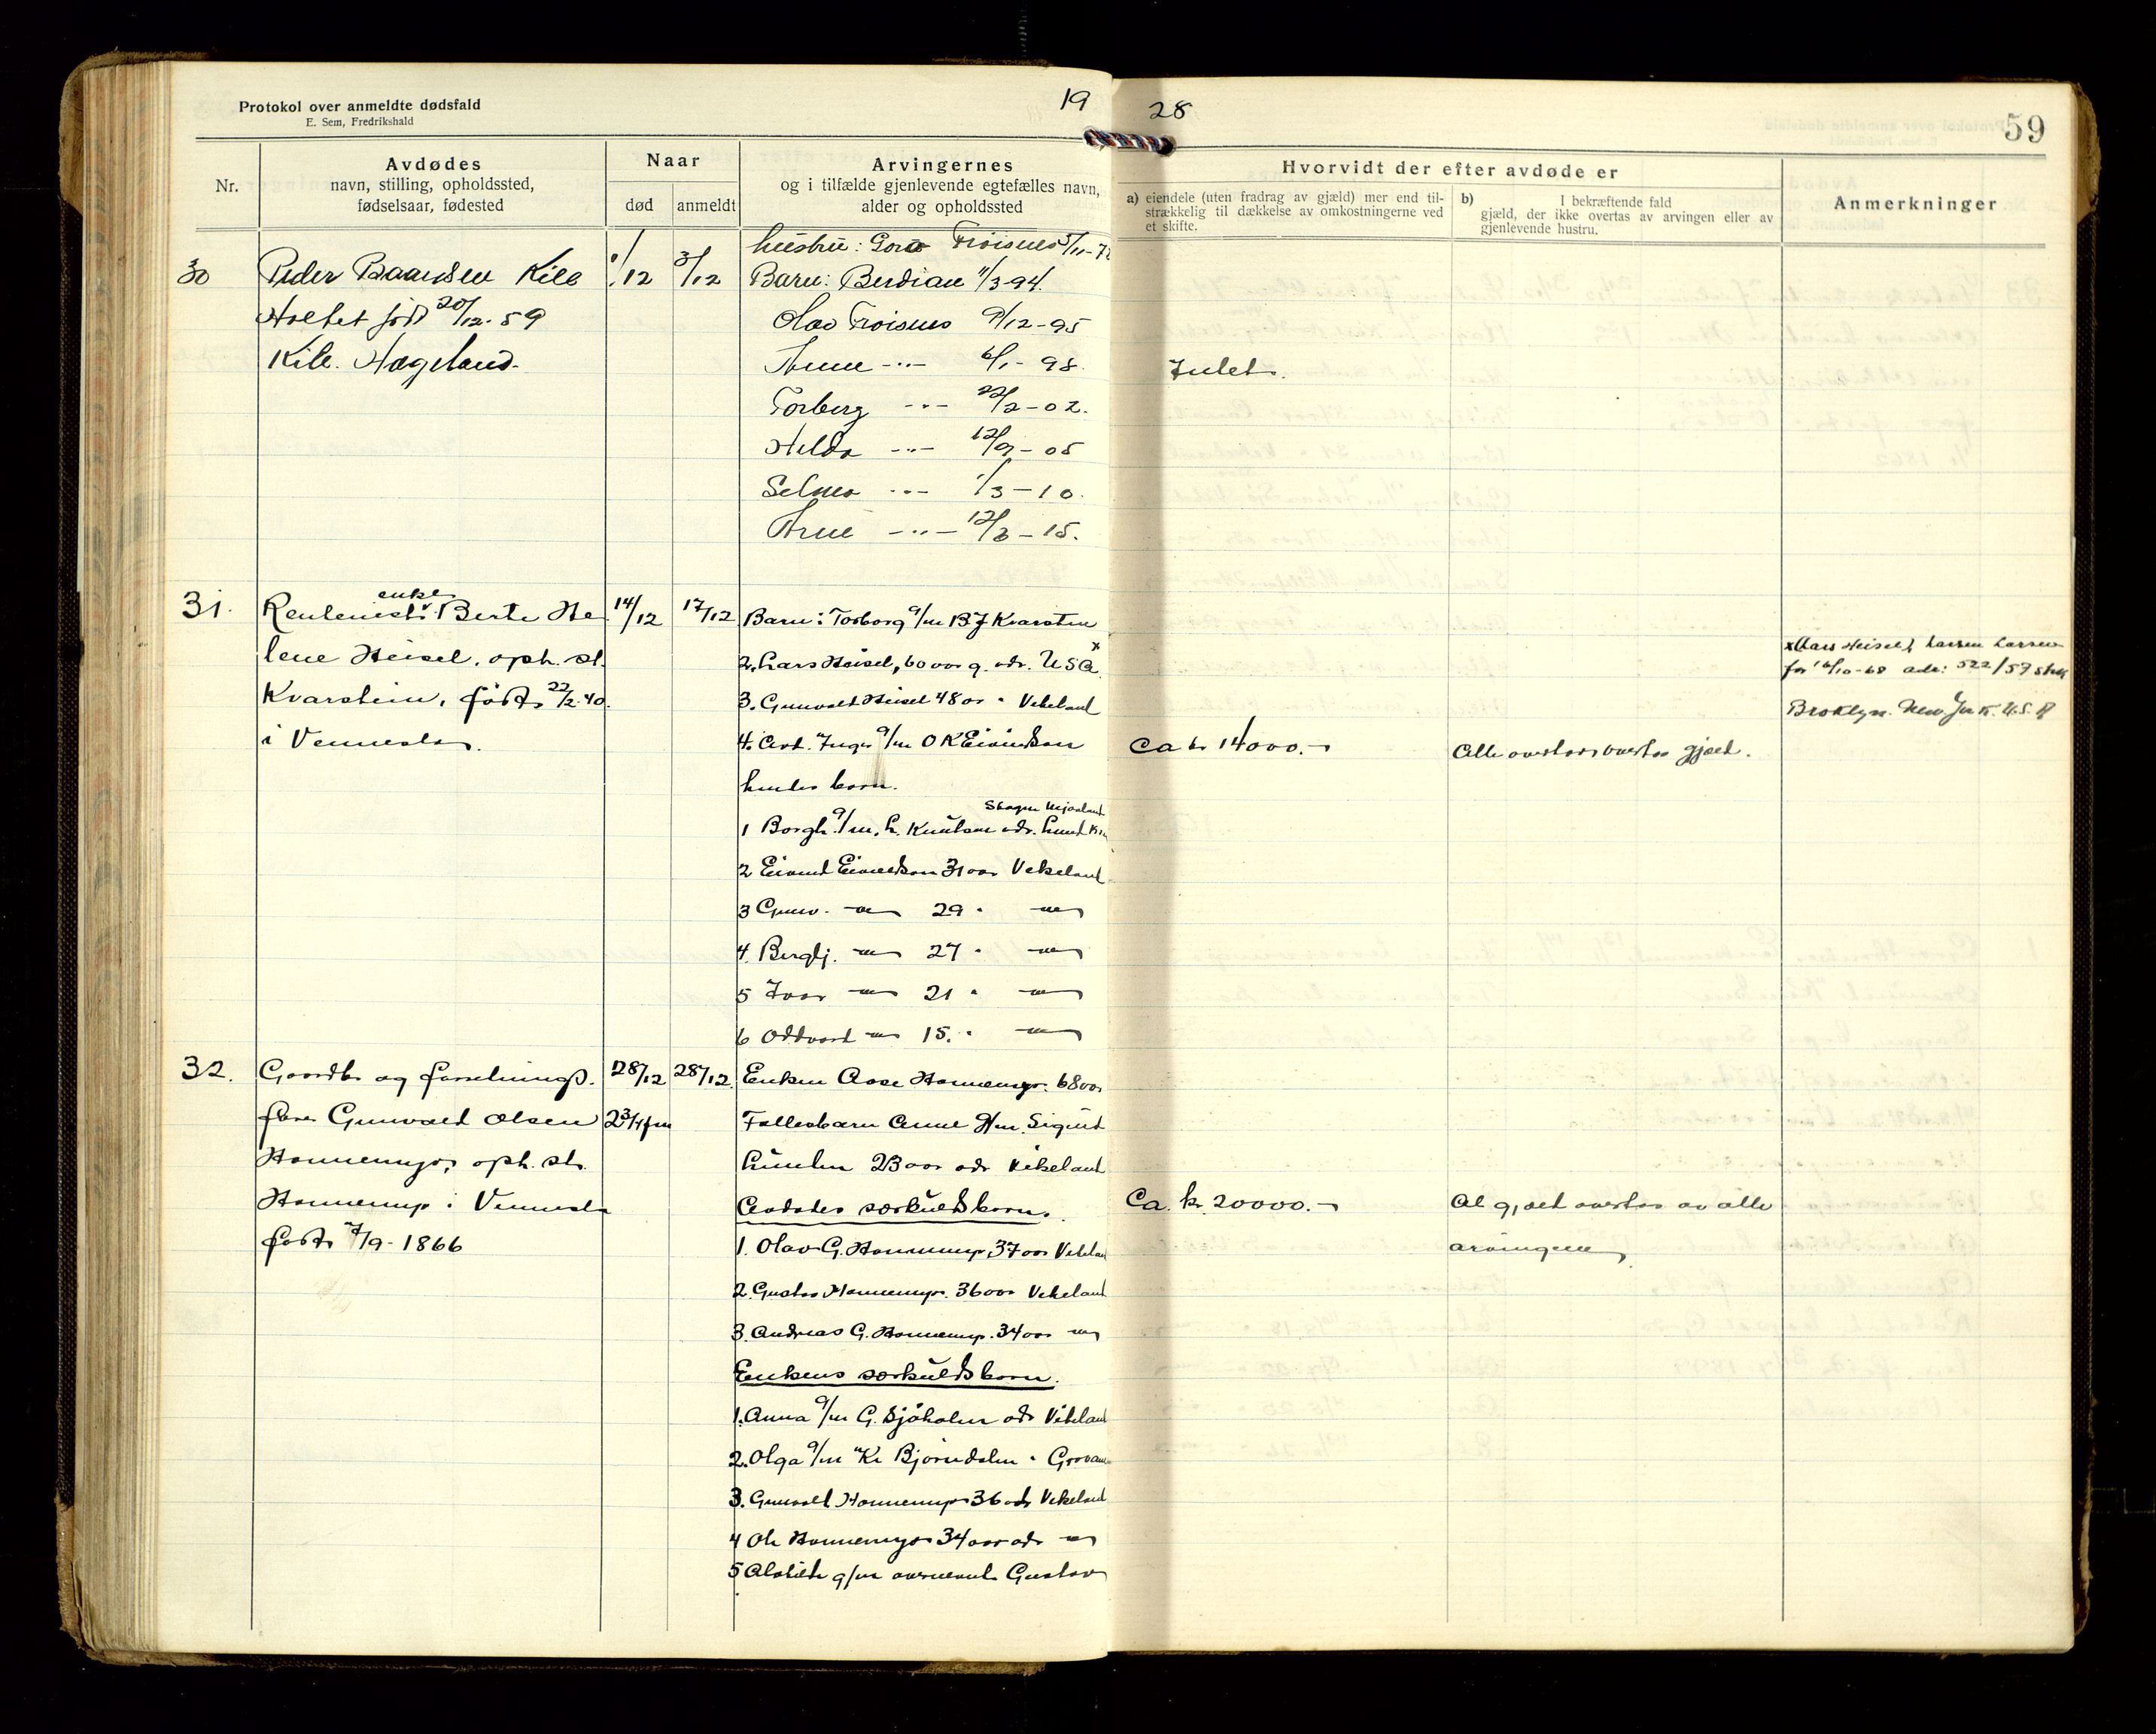 Protokol over anmeldte dødsfald
E. Sem, Fredrikshald
19 28
59
Nr.
Avdødes
navn, stilling, opholdssted,
fødselsaar, fødested
Naar
død
anmeldt
Arvingernes
og i tilfælde gjenlevende egtefælles navn,
alder og opholdssted
Hvorvidt der efter avdøde er
a) eiendele (uten fradrag av gjæld) mer end til-
strækkelig til dækkelse av omkostningerne ved
et skifte.
b) I bekræftende fald
gjæld, der ikke overtas av arvingen eller av
gjenlevende hustru.
Anmerkninger
30
Peder Kile
Holtet født 20/12-59
Kile. Hægeland.
1/12
3/12
hustru: Froisnes 5/11-7
Barn: Berdian 11/3-94.
Olav Froisnes 9/12-95
6/1-98.
Torberg -"- 22/2-02.
Hilda -"- 12/9-05
Selma -"- 1/3-10.
Arne -"- 12/3-15.
Intet.
31.
enke
Berte He
lene Heisel, oph. st.
Kvarstein, født 22/2-40.
i Vennesla.
14/12
17/12
Barn: Torborg g/m B J Kvarstein
2. Lars Heisel, 60 aar g. adr. USA x
3. Gunvald Heisel 48 aar " Vikeland
4. Avd. Inga g/m O K Eivindson
hendes barn.
Skagen Mjaaland
1 Borgh. g/m. L. Knutsen adr. Lund
2 Eivind Eivindson 31 aar Vikeland
3 Gunv. -"- 29 " -"-
4. Berglj. -"- 27 " -"-
5 Ivar -"- 21 " -"-
6 Oddvard -"- 15. " -"-
Ca kr 14000.-
Alle overtar gjæld.
x Lars Heisel, Larsen
før 16/10-68 adr: 522/57 str
Broklyn. New York. U.S.A
32.
Gaardbr. og forretnings-
fører Gunvald Olsen
Honnemyr, oph. st.
Honnemyr i Vennesla
født 7/9-1866
28/12
2 3/4 fm
28/12.
Enken Aase Honnemyr. 68 aar
Fellesbarn Anne g/m. Sigurd
Lunden 23 aar adr Vikeland
Avdødes særkuldsbarn.
1. Olav G. Honnemyr, 37 aar Vikelan
2. Gustav Honnemyr. 36 aar Vikeland
3. Andreas G. Honnemyr. 34 aar -"-
Enkens særkuldsbarn.
1. Anna g/m G. Sjøholm adr Vikeland
2. Olga g/m Kr Bjørndalen " Grovane
3. Gunvald Honnemyr 36 adr Vikeland
4 Ole Honnemyr 34 aar adr -"-
5 Alvilde g/m overnevnte Gustav
Ca. kr. 20000.-
Al gjæld overtas av alle
arvingene.